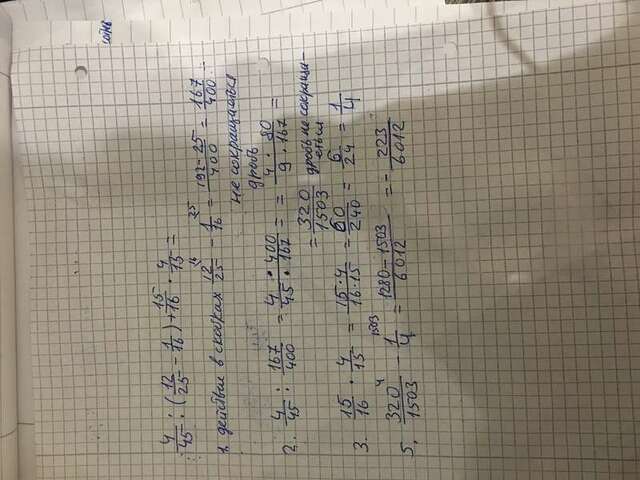 4/45 : (12/25 - 1/16) + 15/16 · 4/15 =
1. действие в скобках 12/25 - 1/16 = 192-25/400 = 167/400
не сокращаться
дробь
2. 4/45 : 167/400 = 4 · 400/45 · 167 = = 4 · 80/9 · 167 =
= 320/1503 дробь не сокраща-
3. 15/16 · 4/15 = 15·4/16·15 = 60/240 = 6/24 = 1/4
5. 320/1503 - 1/4 = 1280 - 1503/6012 = - 223/6012